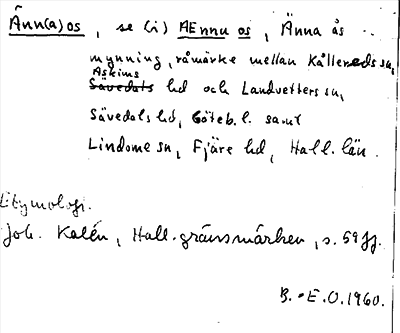 Änn(a)os, se (i) AEnnu os, Änna ås
mynning, råmärke mellan Kållereds sn,
Askims
Sävedals hd och Landvetters sn,
Sävedals hd, Göteb. l. samt
Lindome sn, Fjäre hd, Hall. län.
Etymologi.
Joh. Kalén, Hall. gränsmärken, s. 59 ff.
B. E. O. 1960.